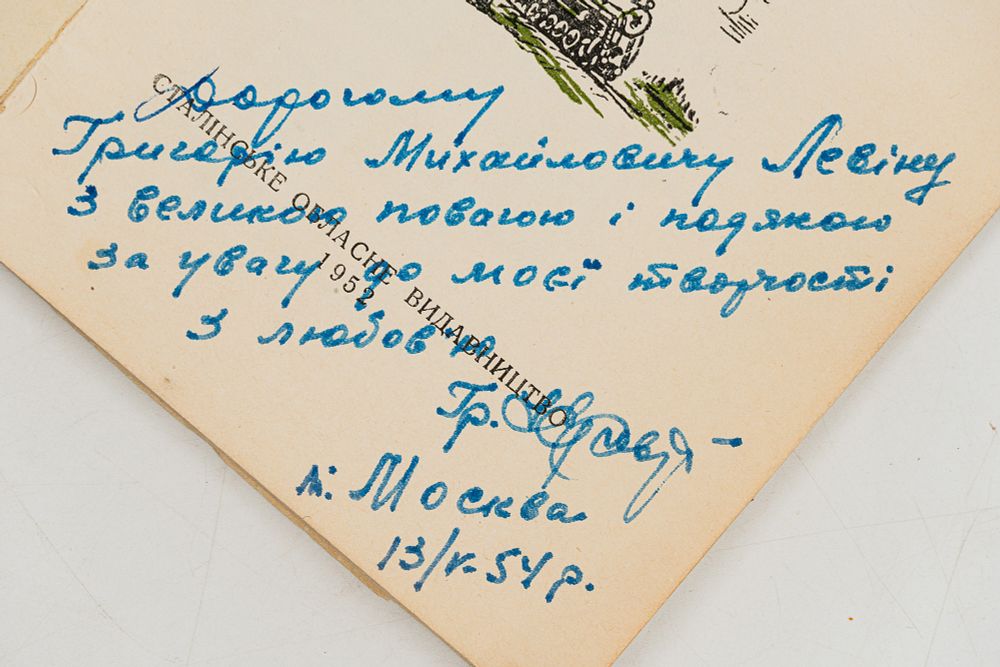 Дорогому
Григорію Михайловичу Левіну
з великою повагою і подякою
за увагу до моєї творчості
З любов'ю
Гр.
м. Москва
13/V-54 р.
СТАЛІНСЬКЕ ОБЛАСНЕ ВИДАВНИЦТВО
1952